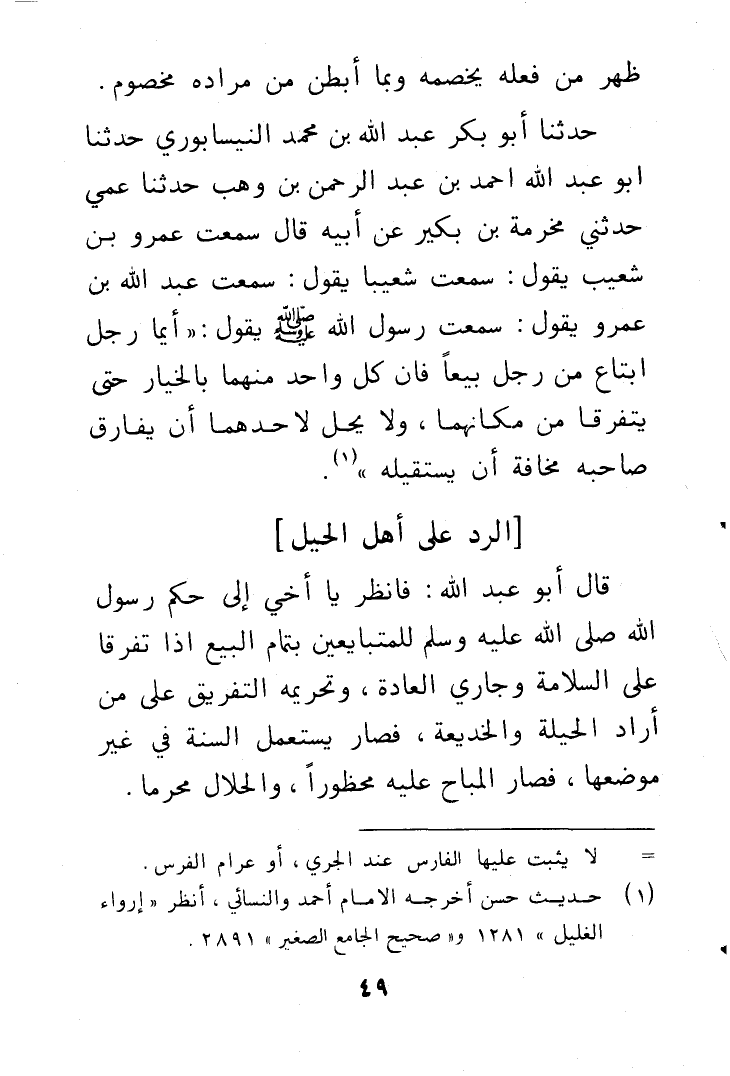 ظهر من فعله يخصمه وبما أبطن من مراده مخصوم .
حدثنا أبو بكر عبد الله بن محمد النيسابوري حدثنا
ابو عبد الله احمد بن عبد الرحمن بن وهب حدثنا عمي
حدثني مخرمة بن بكير عن أبيه قال سمعت عمرو بن
شعيب يقول : سمعت شعيبا يقول : سمعت عبد الله بن
عمرو يقول : سمعت رسول الله ﷺ يقول : « أيما رجل
ابتاع من رجل بيعاً فان كل واحد منهما بالخيار حتى
يتفرقا من مكانهما ، ولا يحل لاحدهما أن يفارق
صاحبه مخافة أن يستقيله »(١) .
[الرد على أهل الحيل]
قال أبو عبد الله : فانظر يا أخي إلى حكم رسول
الله صلى الله عليه وسلم للمتبايعين بتمام البيع اذا تفرقا
على السلامة وجاري العادة ، وتحريمه التفريق على من
أراد الحيلة والخديعة ، فصار يستعمل السنة في غير
موضعها ، فصار المباح عليه محظوراً ، والحلال محرما .
= لا يثبت عليها الفارس عند الجري ، أو عرام الفرس .
(١) حديث حسن أخرجه الامام أحمد والنسائي ، أنظر « إرواء
الغليل » ١٢٨١ و« صحيح الجامع الصغير » ٢٨٩١ .
٤٩